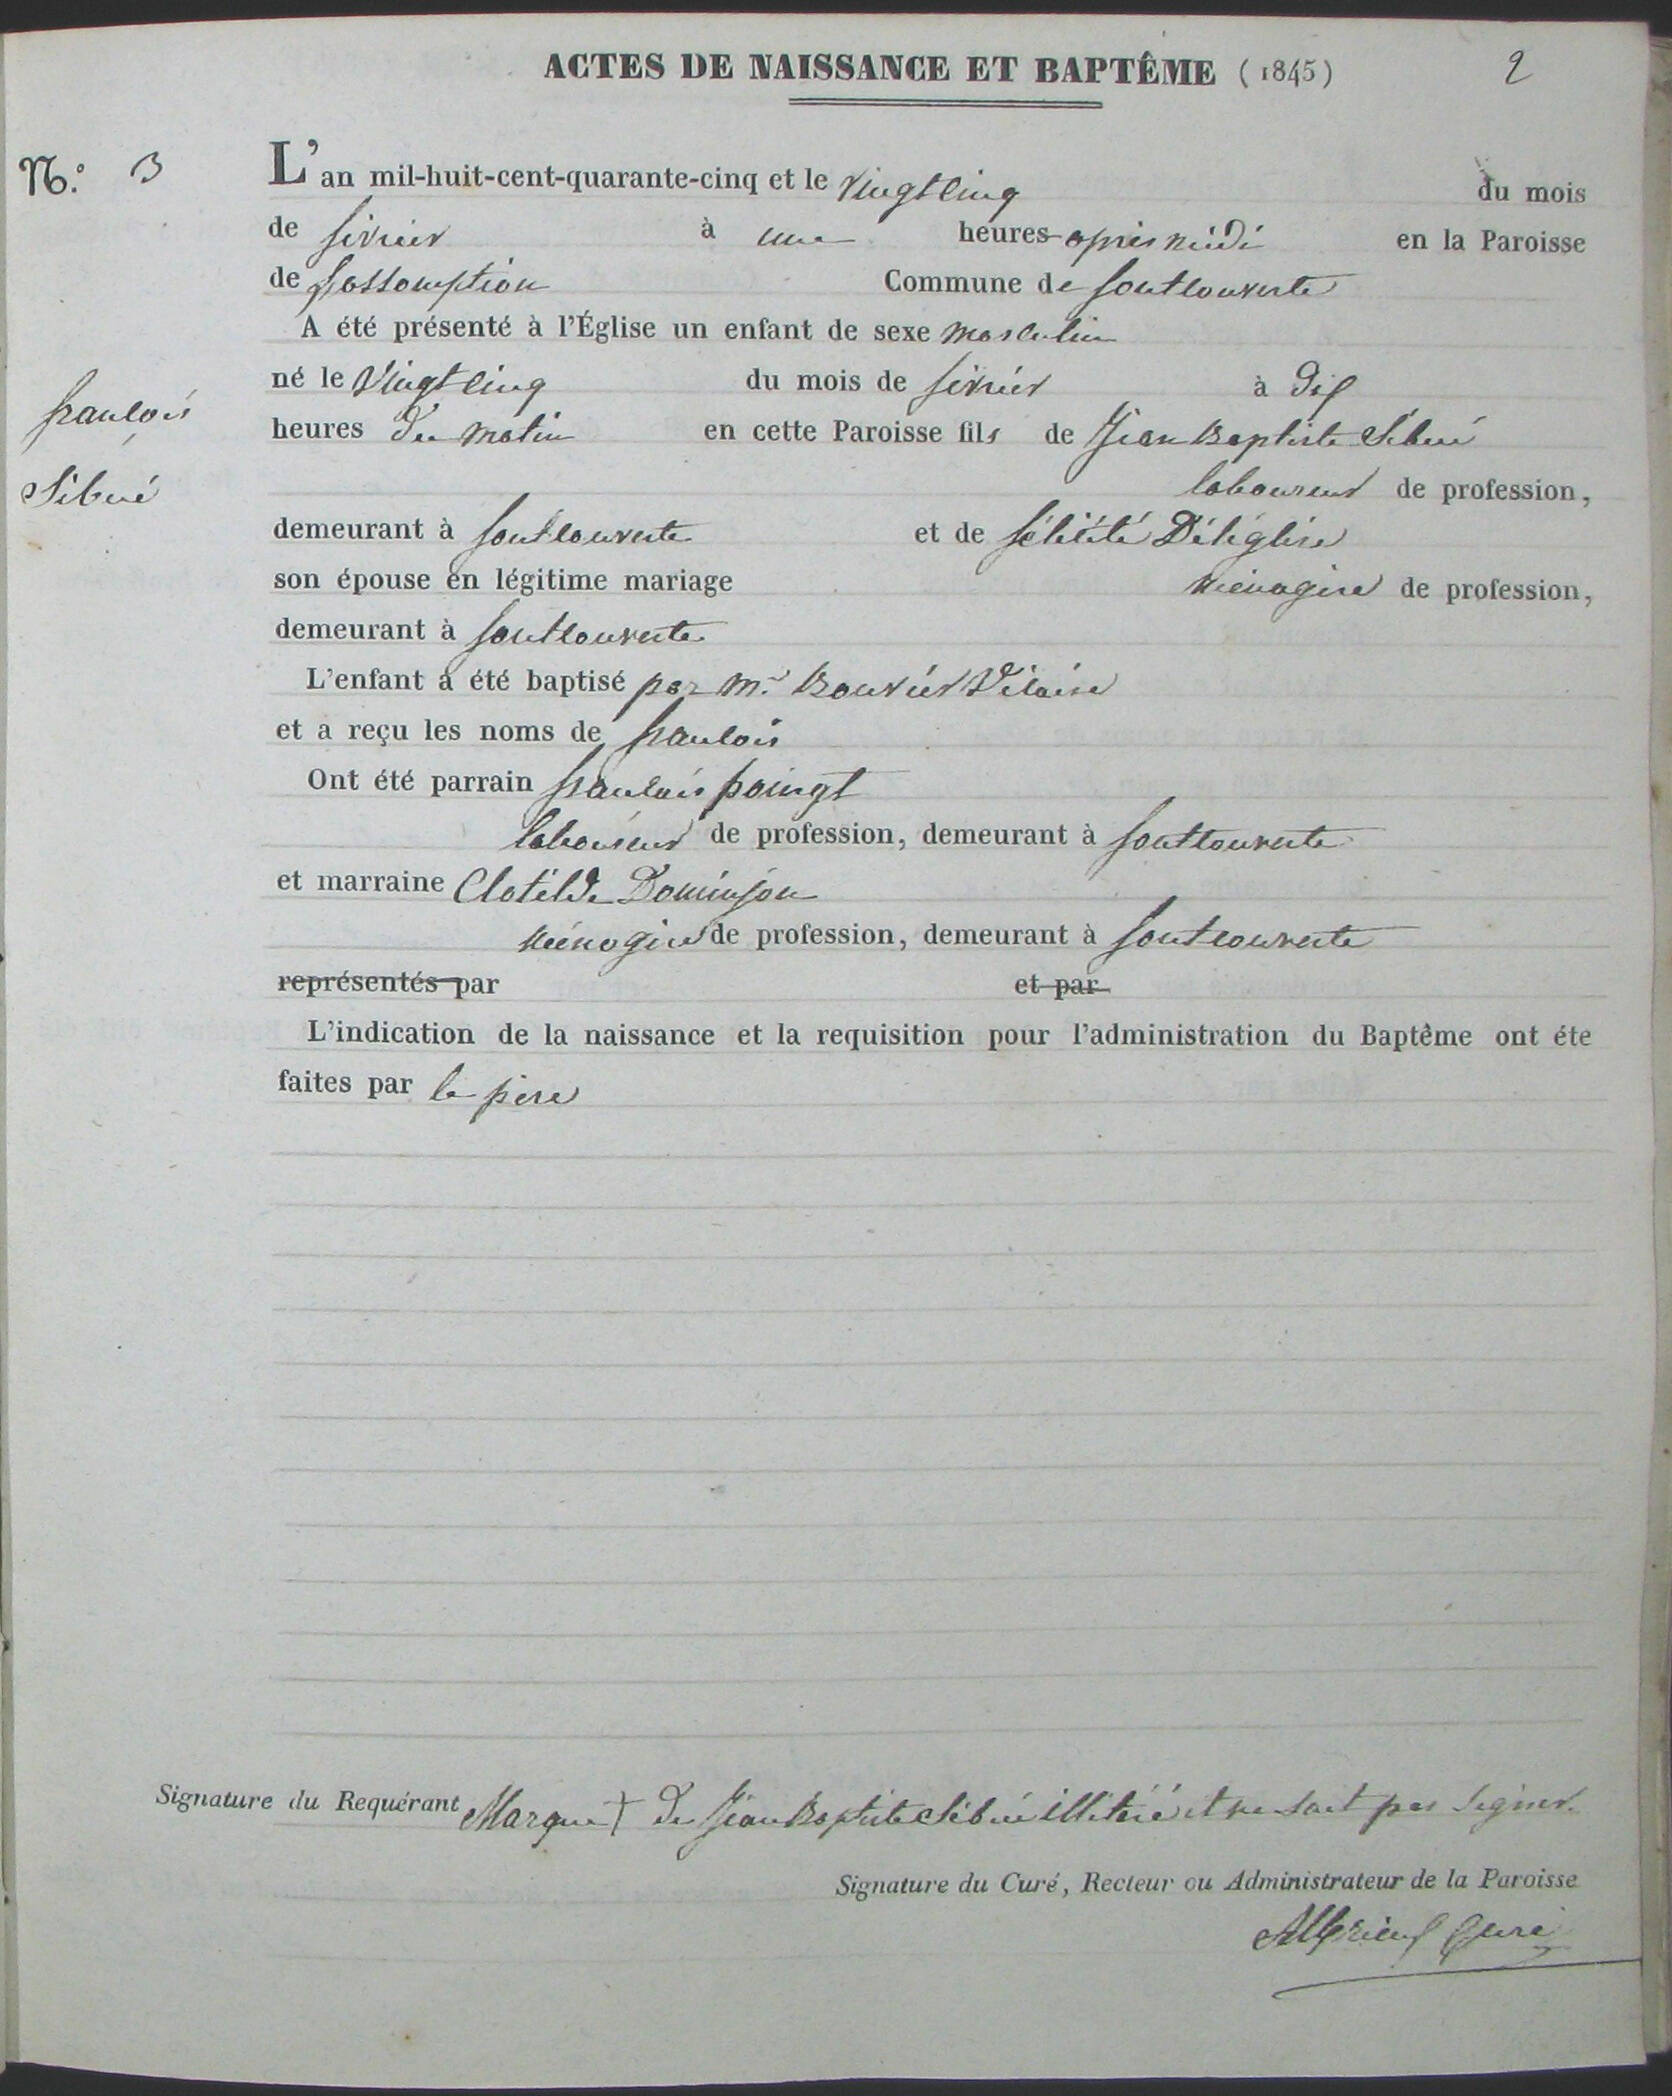 ACTES DE NAISSANCE ET BAPTÊME (1845) 2
N.º 3
L'an mil-huit-cent-quarante-cinq et le vingt cinq du mois
de février à une heures après midi en la Paroisse
de l'assomption Commune de fontcouverte
A été présenté à l'Église un enfant de sexe masculin
né le vingt cinq du mois de février à dix
heures du matin en cette Paroisse fils de Jean Baptiste Sibué
françois
Sibué
laboureur de profession,
demeurant à fontcouverte et de félicité Déléglise
son épouse en légitime mariage ménagère de profession,
demeurant à fontcouverte
L'enfant a été baptisé par mr Bouvier Vicaire
et a reçu les noms de françois
Ont été parrain françois poingt
laboureur de profession, demeurant à fontcouverte
et marraine Clotilde Dominjon
ménagère de profession, demeurant à fontcouverte
représentés par et par
L'indication de la naissance et la requisition pour l'administration du Baptême ont éte
faites par le père
Signature du Requérant Marque + de Jean Baptiste Sibué illitéré et ne sait pas signer.
Signature du Curé, Recteur ou Administrateur de la Paroisse
Curé